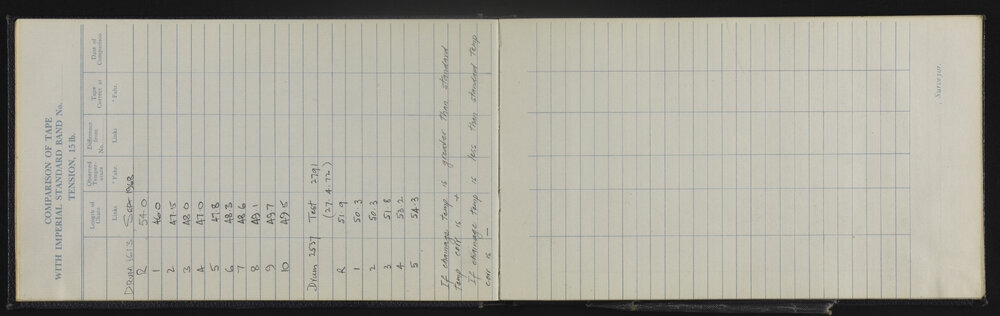 COMPARISON OF TAPE
WITH IMPERIAL STANDARD BAND No.
TENSION, 15 lb.
Length of Chain Links
Observed Temperature °Fahr.
Difference from No. Links
Tape Correct at °Fahr.
Date of Comparison
Drum 1613 Sept 1968
R 54.0
1 46.0
2 47.5
3 48.0
4 47.0
5 47.8
6 48.3
7 48.6
8 49.1
9 49.7
10 49.5
Drum 2537 Test 2791
(27.4.72)
R 51.9
1 50.3
2 50.3
3 51.8
4 53.2
5 54.3
If chainage temp is greater than standard
temp corr is +
If chainage temp is less than standard temp
corr is —
Surveyor.